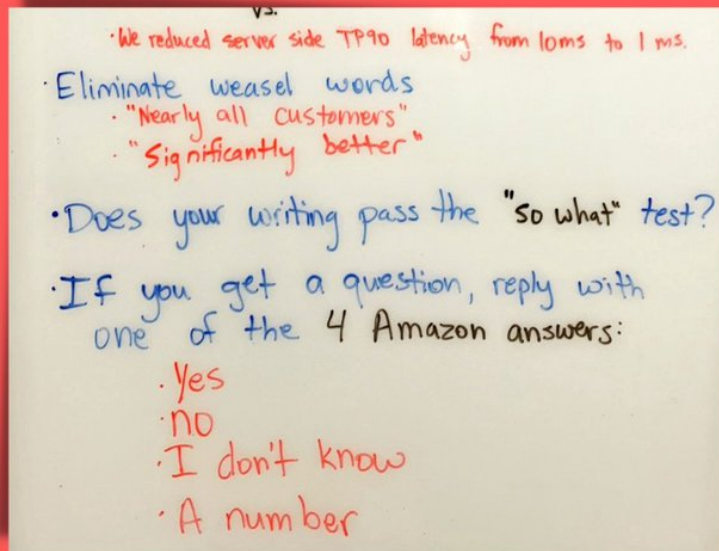 vs.
·We reduced server side TP90 latency from 10ms to 1 ms.
·Eliminate weasel words
·"Nearly all customers"
·"Significantly better"
·Does your writing pass the "so what" test?
·If you get a question, reply with
one of the 4 Amazon answers:
·Yes
·no
·I don't know
·A number